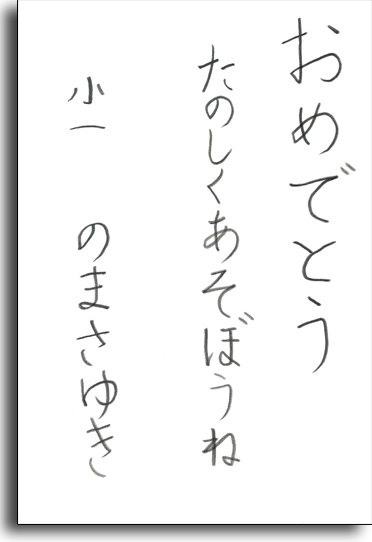 おめでとう
たのしくあそぼうね
小一 のまさゆき